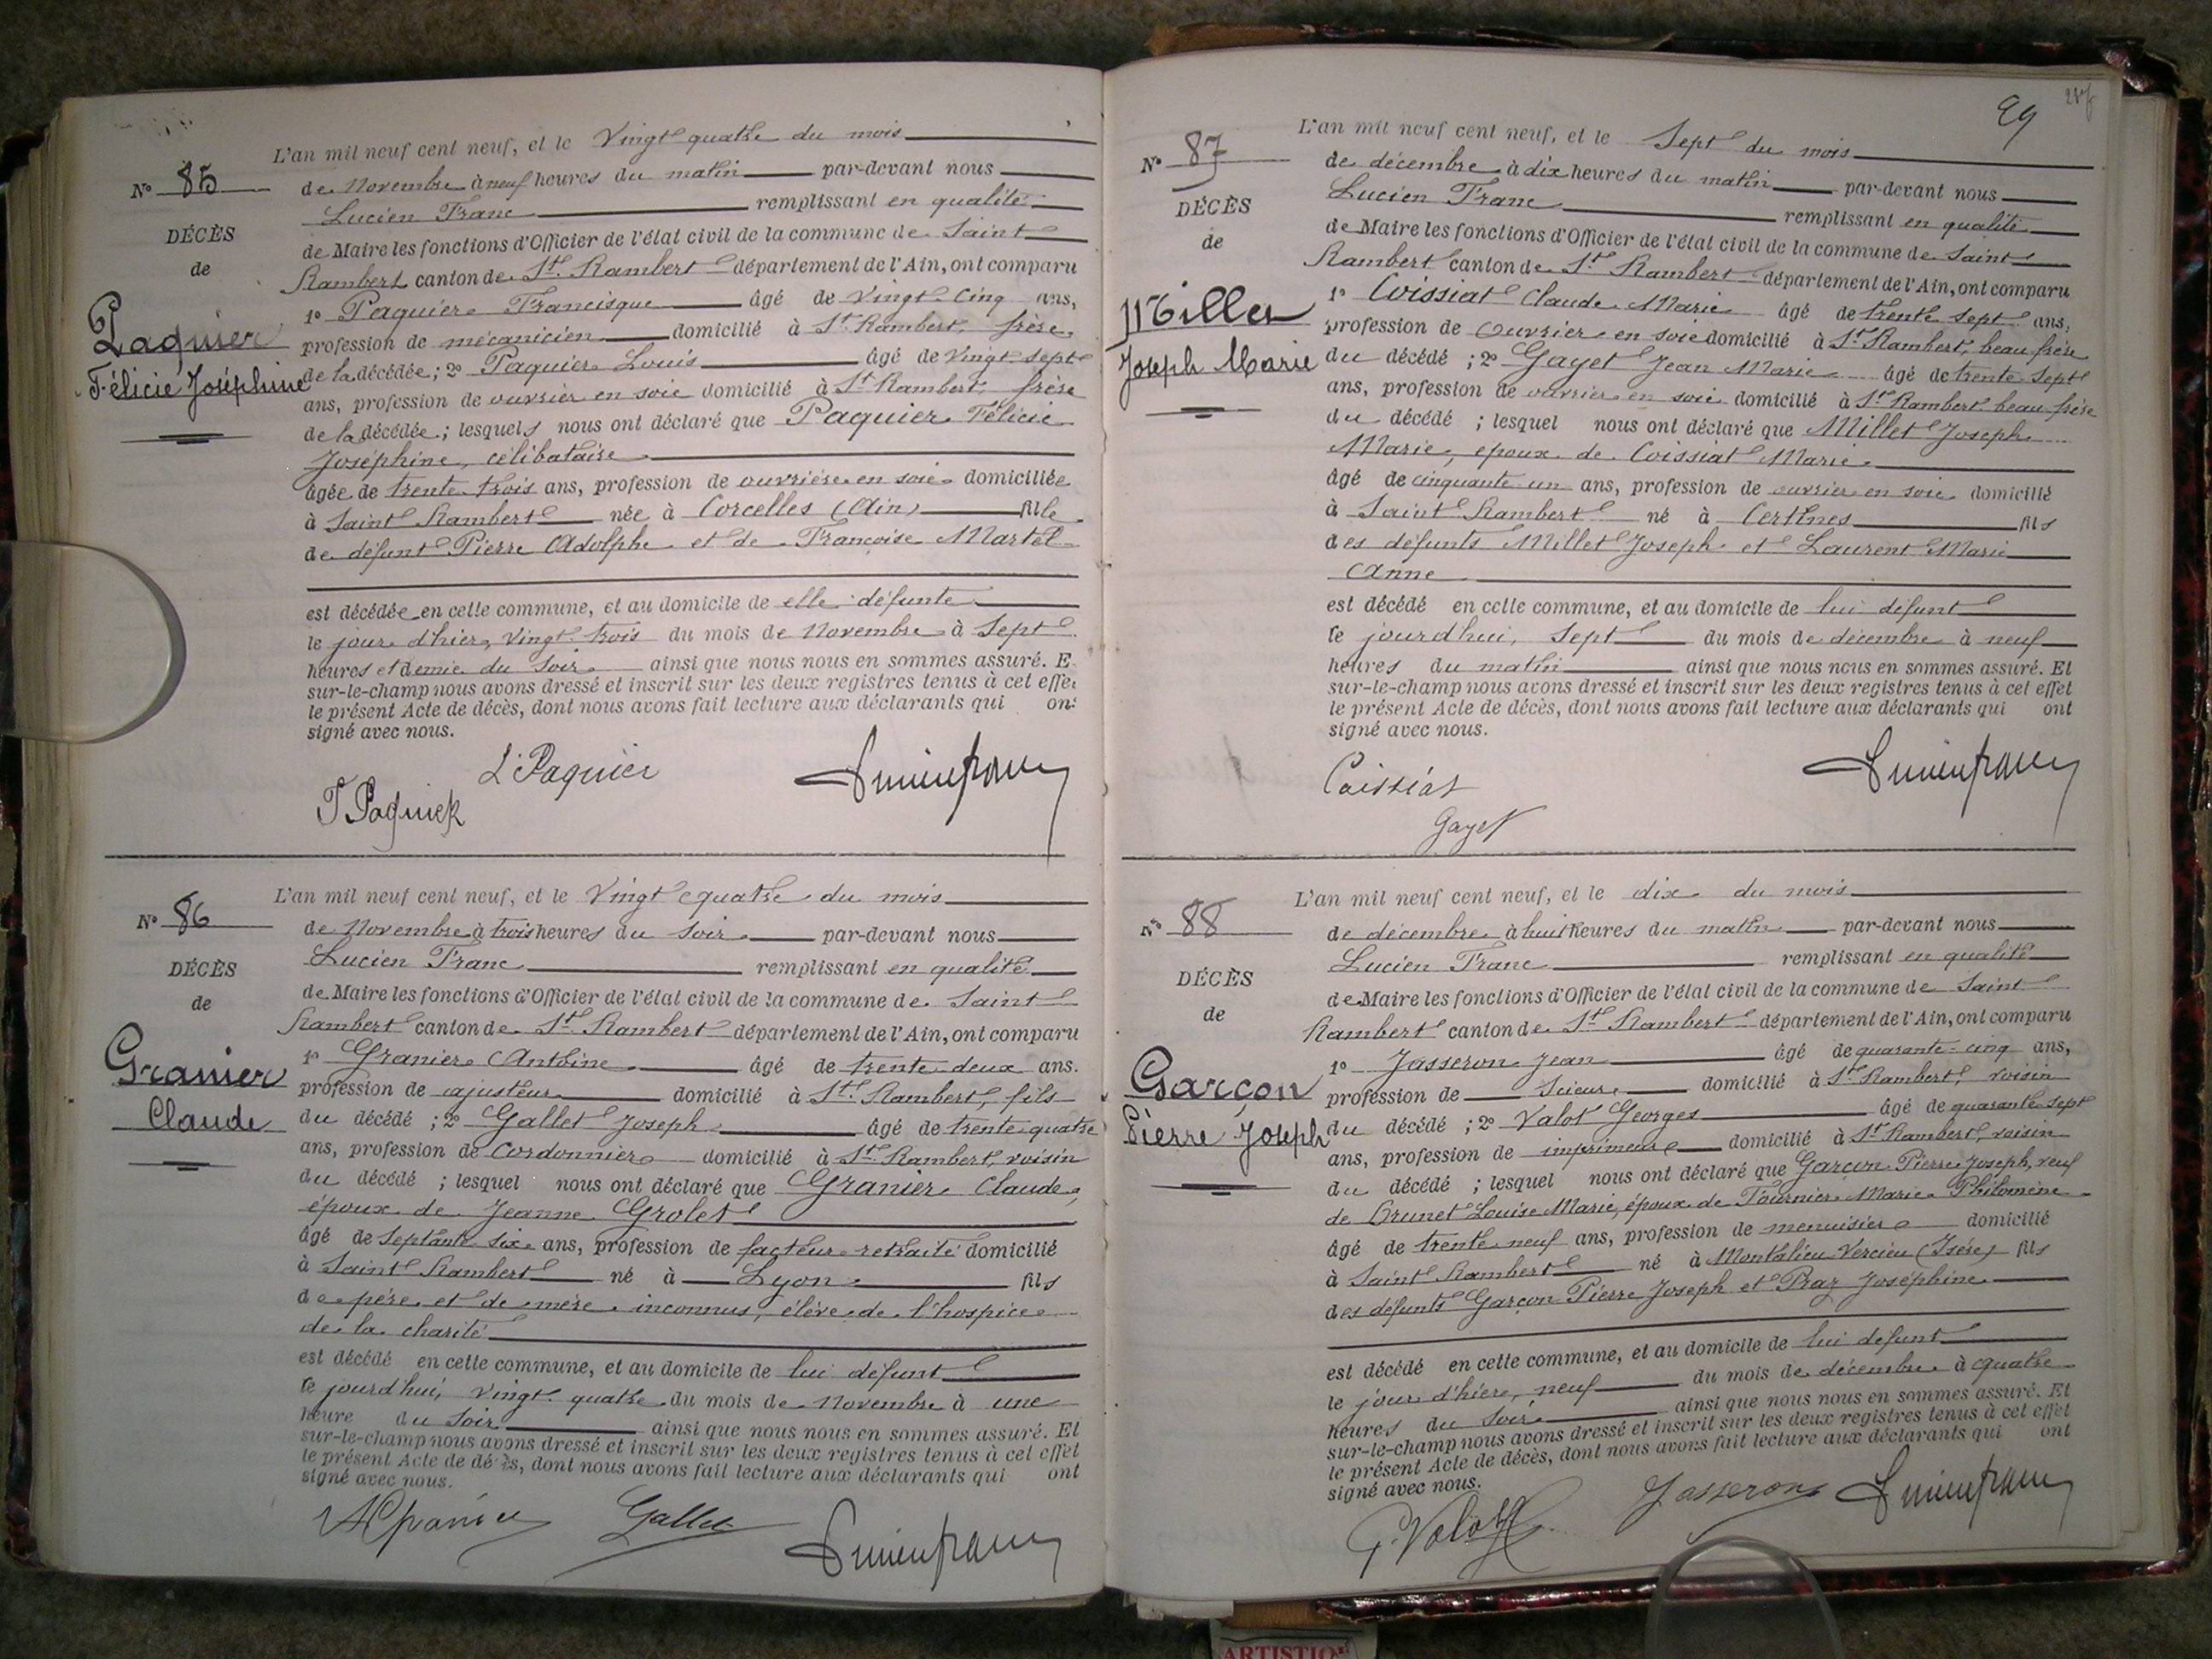 N° 85
DÉCÈS
de
Paquier
Félicie Joséphine
L'an mil neuf cent neuf, et le Vingt quatre du mois
de Novembre à neuf heures du matin par-devant nous
Lucien Franc remplissant en qualité
de Maire les fonctions d'Officier de l'état civil de la commune de Saint
Rambert canton de St. Rambert département de l'Ain, ont comparu
1° Paquier Francisque âgé de Vingt-Cinq ans,
profession de mécanicien domicilié à St Rambert, frère
de la décédée; 2° Paquier Louis âgé de vingt-sept
ans, profession de ouvrier en soie domicilié à St Rambert, frère
de la décédée; lesquels nous ont déclaré que Paquier Félicie
Joséphine, célibataire
âgée de trente-trois ans, profession de ouvrière en soie domiciliée
à Saint Rambert née à Corcelles (Ain) fille
de défunt Pierre Adolphe et de Françoise Martel
est décédée en cette commune, et au domicile de elle défunte
le jour d'hier, vingt-trois du mois de Novembre à Sept
heures et demie du Soir ainsi que nous nous en sommes assuré. E
sur-le-champ nous avons dressé et inscrit sur les deux registres tenus à cet effe
le présent Acte de décès, dont nous avons fait lecture aux déclarants qui on
signé avec nous.
L. Paquier
F Paquier
N° 86
DÉCÈS
de
Granier
Claude
L'an mil neuf cent neuf, et le Vingt quatre du mois
de Novembre à trois heures du Soir par-devant nous
Lucien Franc remplissant en qualité
de Maire les fonctions d'Officier de l'état civil de la commune de Saint
Rambert canton de St. Rambert département de l'Ain, ont comparu
1° Granier Antoine âgé de trente-deux ans.
profession de ajusteur domicilié à St. Rambert, fils
du décédé ; 2° Gallet Joseph âgé de trente-quatre
ans, profession de Cordonnier domicilié à St. Rambert, voisin
du décédé ; lesquel nous ont déclaré que Granier Claude,
époux de Jeanne Grolet
âgé de Septante six ans, profession de facteur retraité domicilié
à Saint Rambert né à Lyon fils
de père et de mère inconnus, élève de l'hospice
de la charité
est décédé en cette commune, et au domicile de lui défunt
le jourd'hui, vingt-quatre du mois de Novembre à une
heure du Soir ainsi que nous nous en sommes assuré. Et
sur-le-champ nous avons dressé et inscrit sur les deux registres tenus à cet effet
le présent Acte de décès, dont nous avons fait lecture aux déclarants qui ont
signé avec nous.
AGranier Gallet
29
N° 87
DÉCÈS
de
Millet
Joseph Marie
L'an mil neuf cent neuf, et le Sept du mois
de décembre à dix heures du matin par-devant nous
Lucien Franc remplissant en qualité
de Maire les fonctions d'Officier de l'état civil de la commune de Saint
Rambert canton de St Rambert département de l'Ain, ont comparu
1° Coissiat Claude Marie âgé de trente sept ans,
profession de ouvrier en soie domicilié à St Rambert, beau frère
du décédé ; 2° Gayet Jean Marie âgé de trente Sept
ans, profession de ouvrier en soie domicilié à St Rambert beau frère
du décédé ; lesquel nous ont déclaré que Millet Joseph
Marie, époux de Coissiat Marie
âgé de cinquante un ans, profession de ouvrier en soie domicilié
à Saint Rambert né à Certines fils
des défunts Millet Joseph et Laurent Marie
Anne
est décédé en cette commune, et au domicile de lui défunt
le jourd'hui, Sept du mois de décembre à neuf
heures du matin ainsi que nous nous en sommes assuré. Et
sur-le-champ nous avons dressé et inscrit sur les deux registres tenus à cet effet
le présent Acte de décès, dont nous avons fait lecture aux déclarants qui ont
signé avec nous.
Coissiat
Gayet
N° 88
DÉCÈS
de
Garçon
Pierre Joseph
L'an mil neuf cent neuf, et le dix du mois
de décembre à huit heures du matin par-devant nous
Lucien Franc remplissant en qualité
de Maire les fonctions d'Officier de l'état civil de la commune de Saint
Rambert canton de St Rambert département de l'Ain, ont comparu
1° Jasseron Jean âgé de quarante-cinq ans,
profession de Scieur domicilié à St Rambert, voisin
du décédé ; 2° Valot Georges âgé de quarante sept
ans, profession de imprimeur domicilié à St Rambert, voisin
du décédé ; lesquel nous ont déclaré que Garçon Pierre Joseph, veuf
de Brunet Louise Marie, époux de Fournier Marie Philomène
âgé de trente neuf ans, profession de menuisier domicilié
à Saint Rambert né à Montalieu Vercieu (Isére) fils
des défunts Garçon Pierre Joseph et Praz Joséphine
est décédé en cette commune, et au domicile de lui défunt
le jour d'hier, neuf du mois de décembre à quatre
heures du Soir ainsi que nous nous en sommes assuré. Et
sur-le-champ nous avons dressé et inscrit sur les deux registres tenus à cet effet
le présent Acte de décès, dont nous avons fait lecture aux déclarants qui ont
signé avec nous.
G. Valot Jasseron